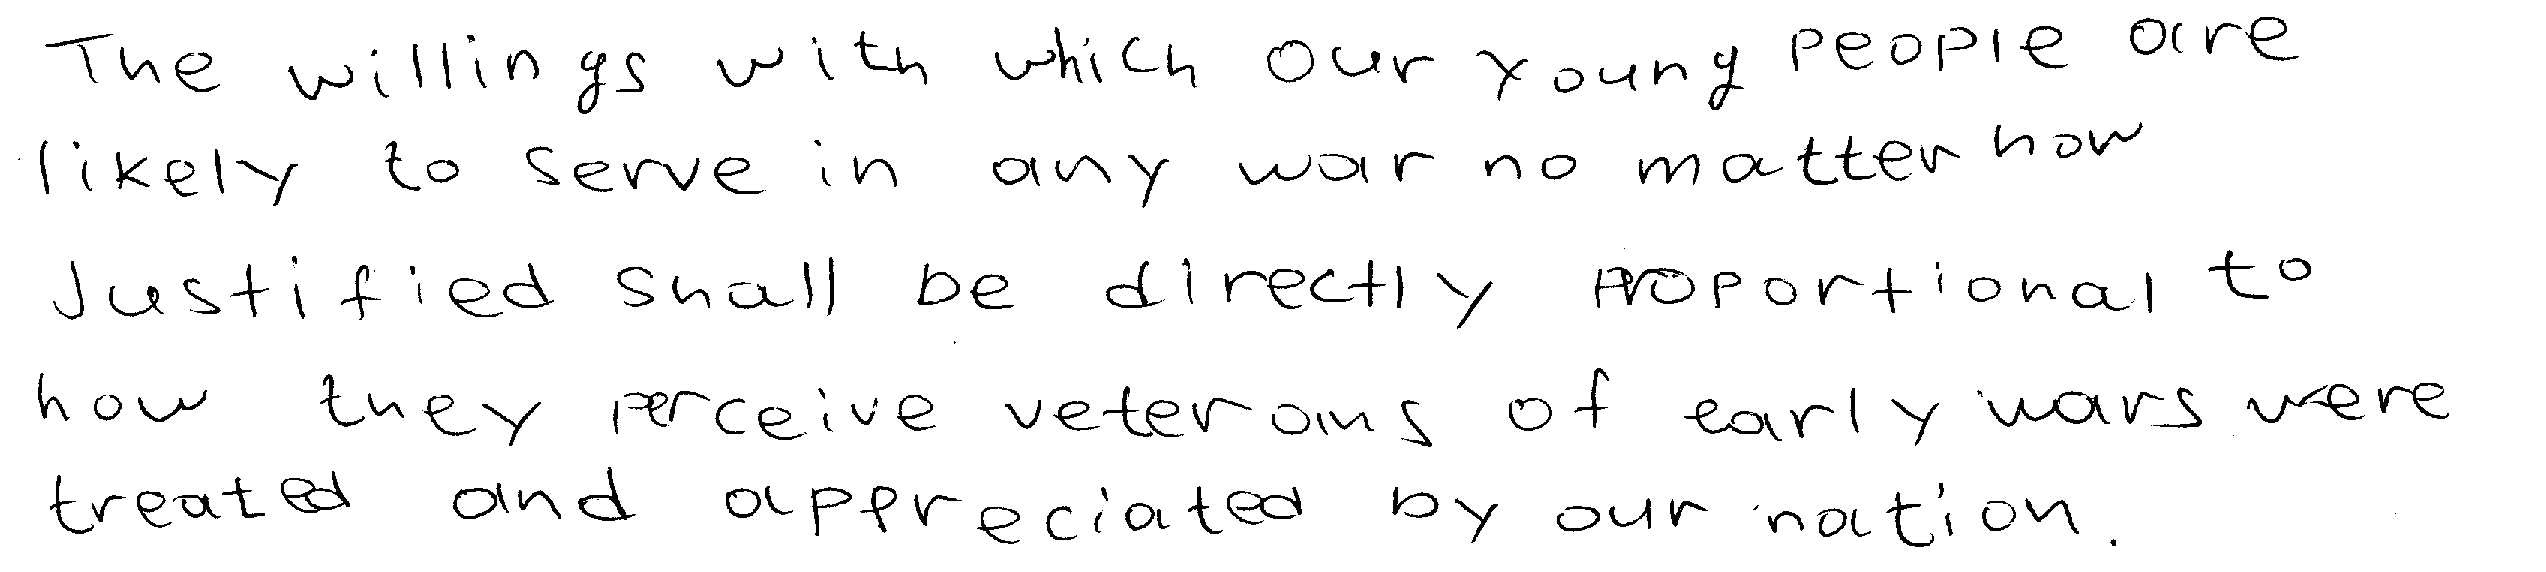 The willings with which our young people are
likely to serve in any war no matter how
Justified shall be directly proportional to
how they perceive veterans of early wars were
treated and appreciated by our nation.